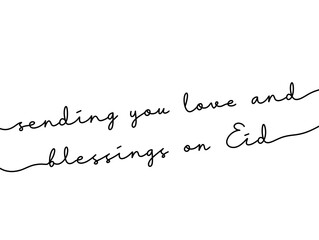 sending you love and
blessings on Eid